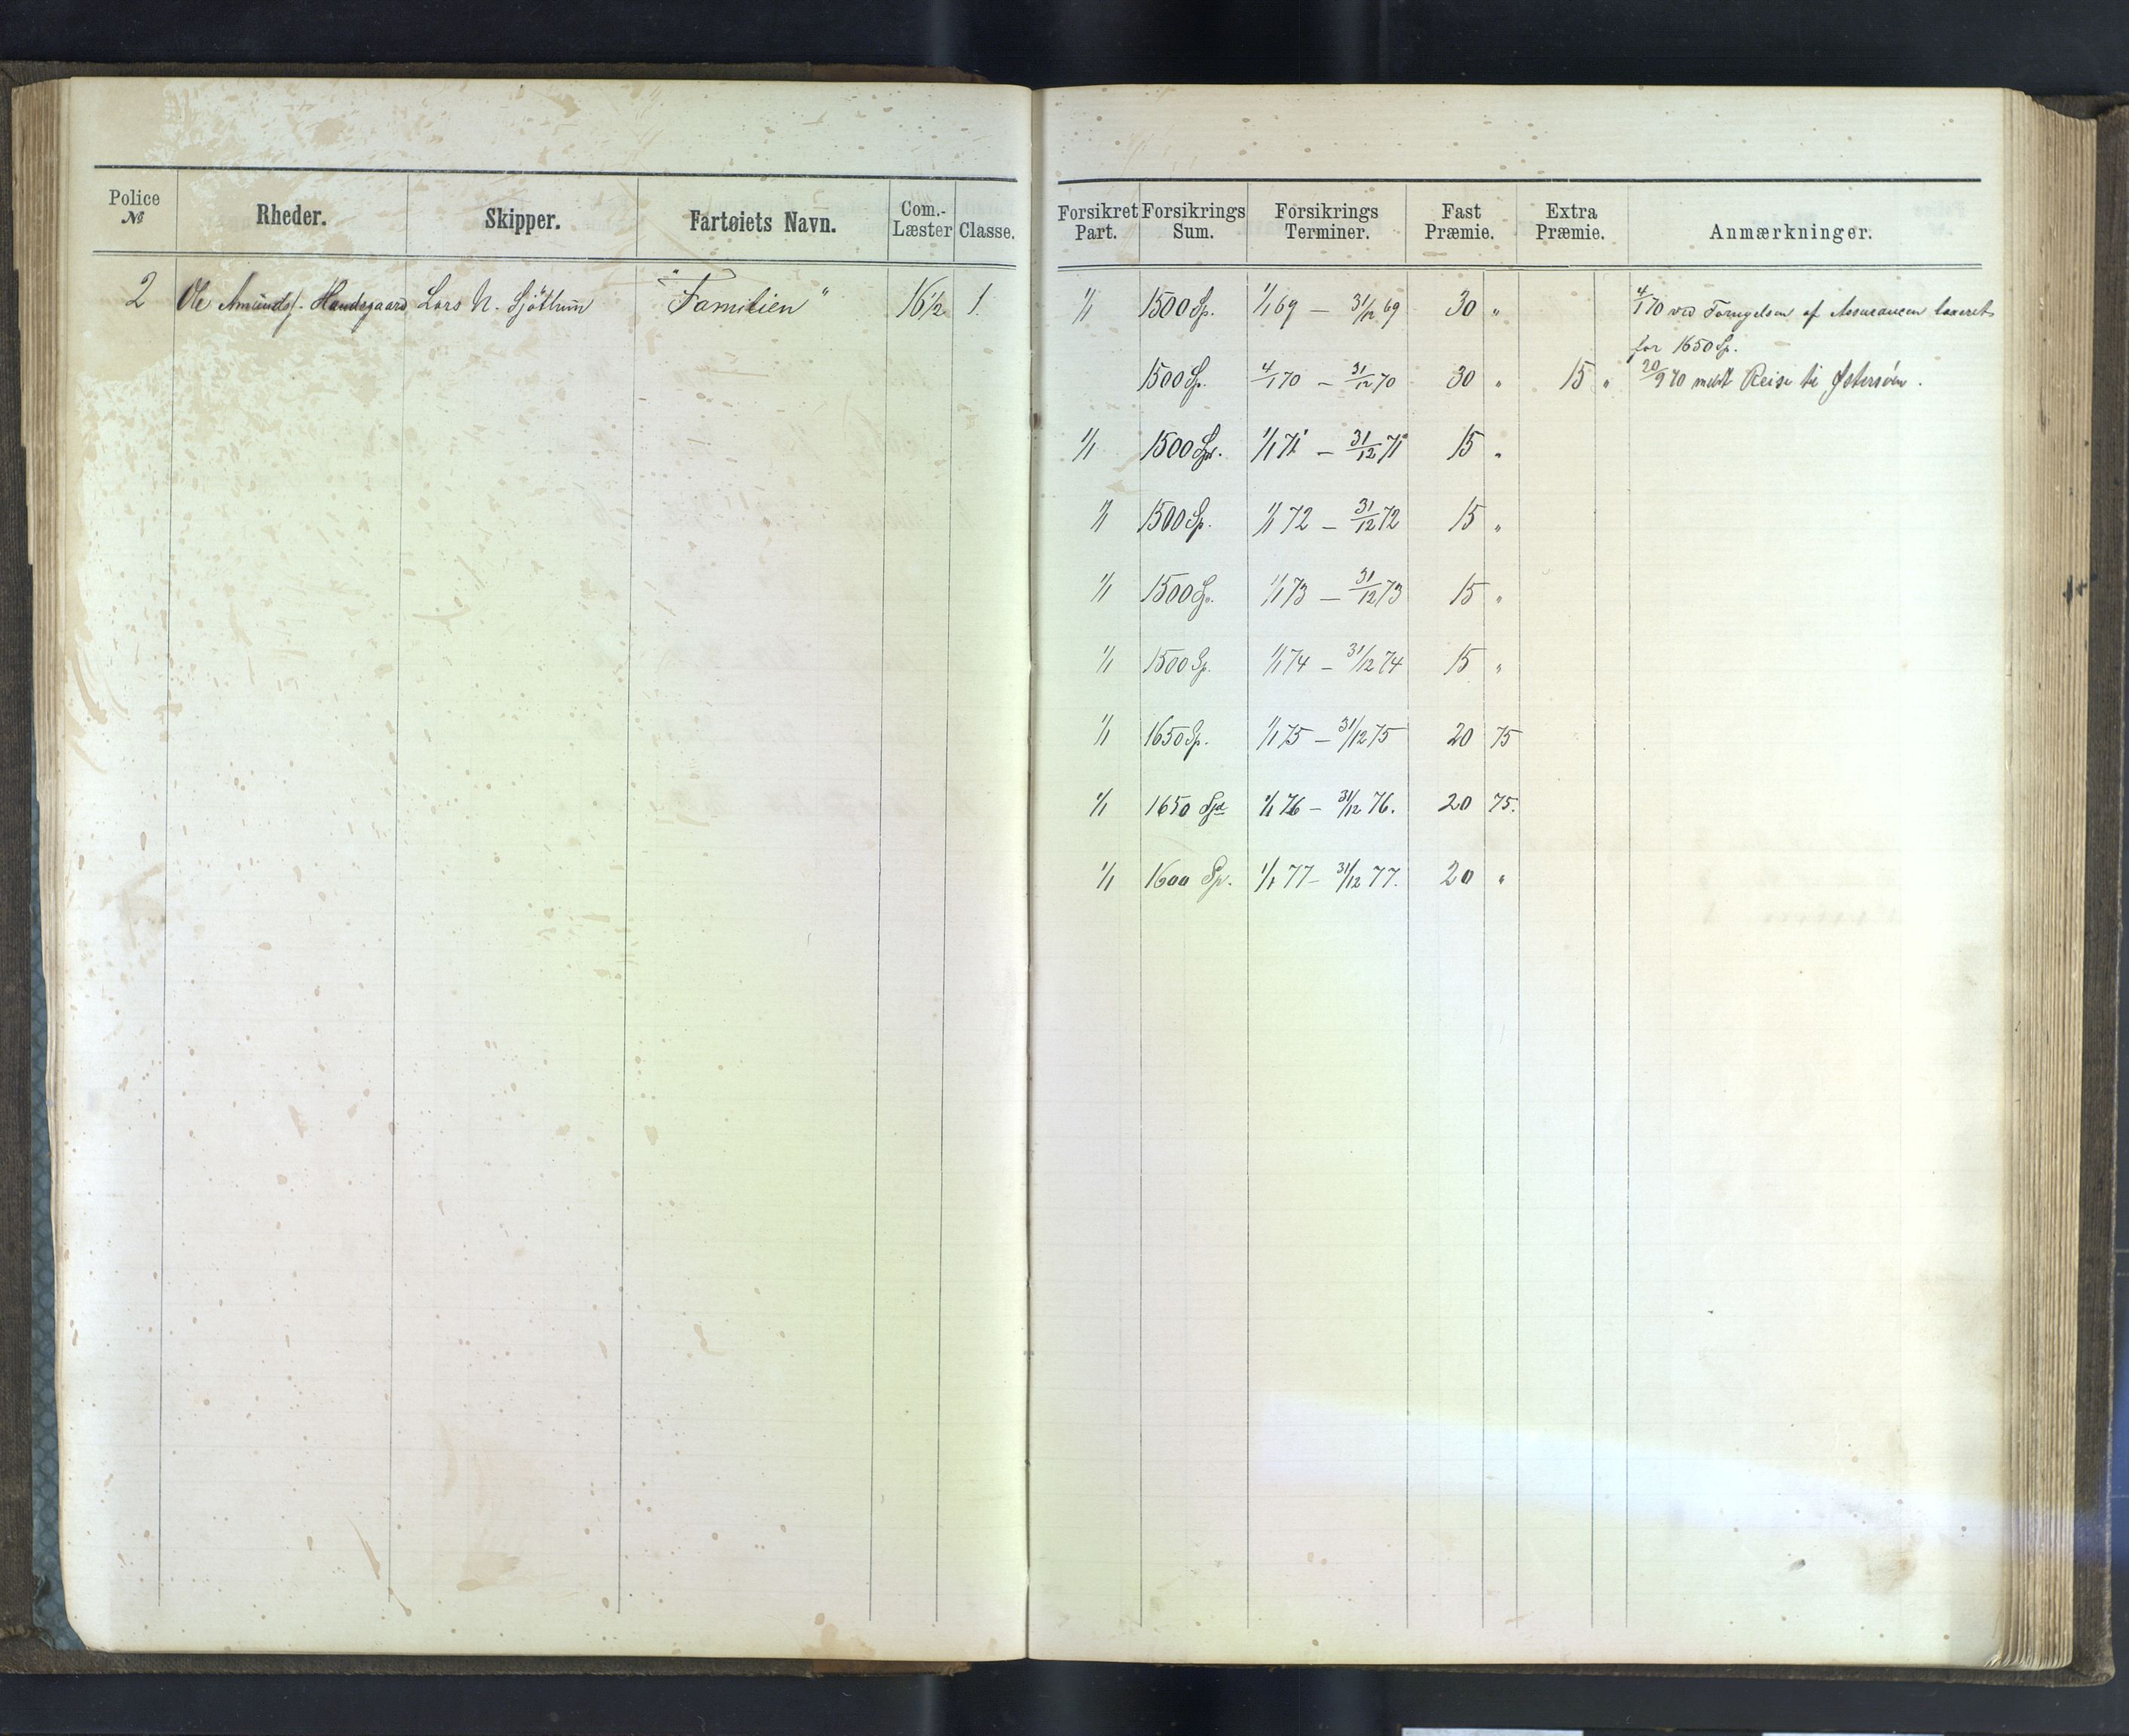 Police № Rheder. Skipper. Fartøiets Navn. Com.-Læster Classe.
2 Ole Amunds. Handegaard Lars N. Sjöthun "Familien" 16½ 1.
Forsikret Part. Forsikrings Sum. Forsikrings Terminer. Fast Præmie. Extra Præmie. Anmærkninger.
1/1 1500 Sp. 1/1 69 – 31/12 69 30 " 4/1 70 ved Fornyelsen af Assurancen taxeret
for 1650 Sp.
1500 Sp. 4/1 70 – 31/12 70 30 " 15 " 20/9 70 meldt Reise til Østersöen.
1/1 1500 Sp. 1/1 71 – 31/12 71 15 "
1/1 1500 Sp. 1/1 72 – 31/12 72 15 "
1/1 1500 Sp. 1/1 73 – 31/12 73 15 "
1/1 1500 Sp. 1/1 74 – 31/12 74 15 "
1/1 1650 Sp. 1/1 75 – 31/12 75 20 75
1/1 1650 Spd 1/1 76 – 31/12 76. 20 75.
1/1 1600 Sp. 1/1 77 – 31/12 77. 20 "